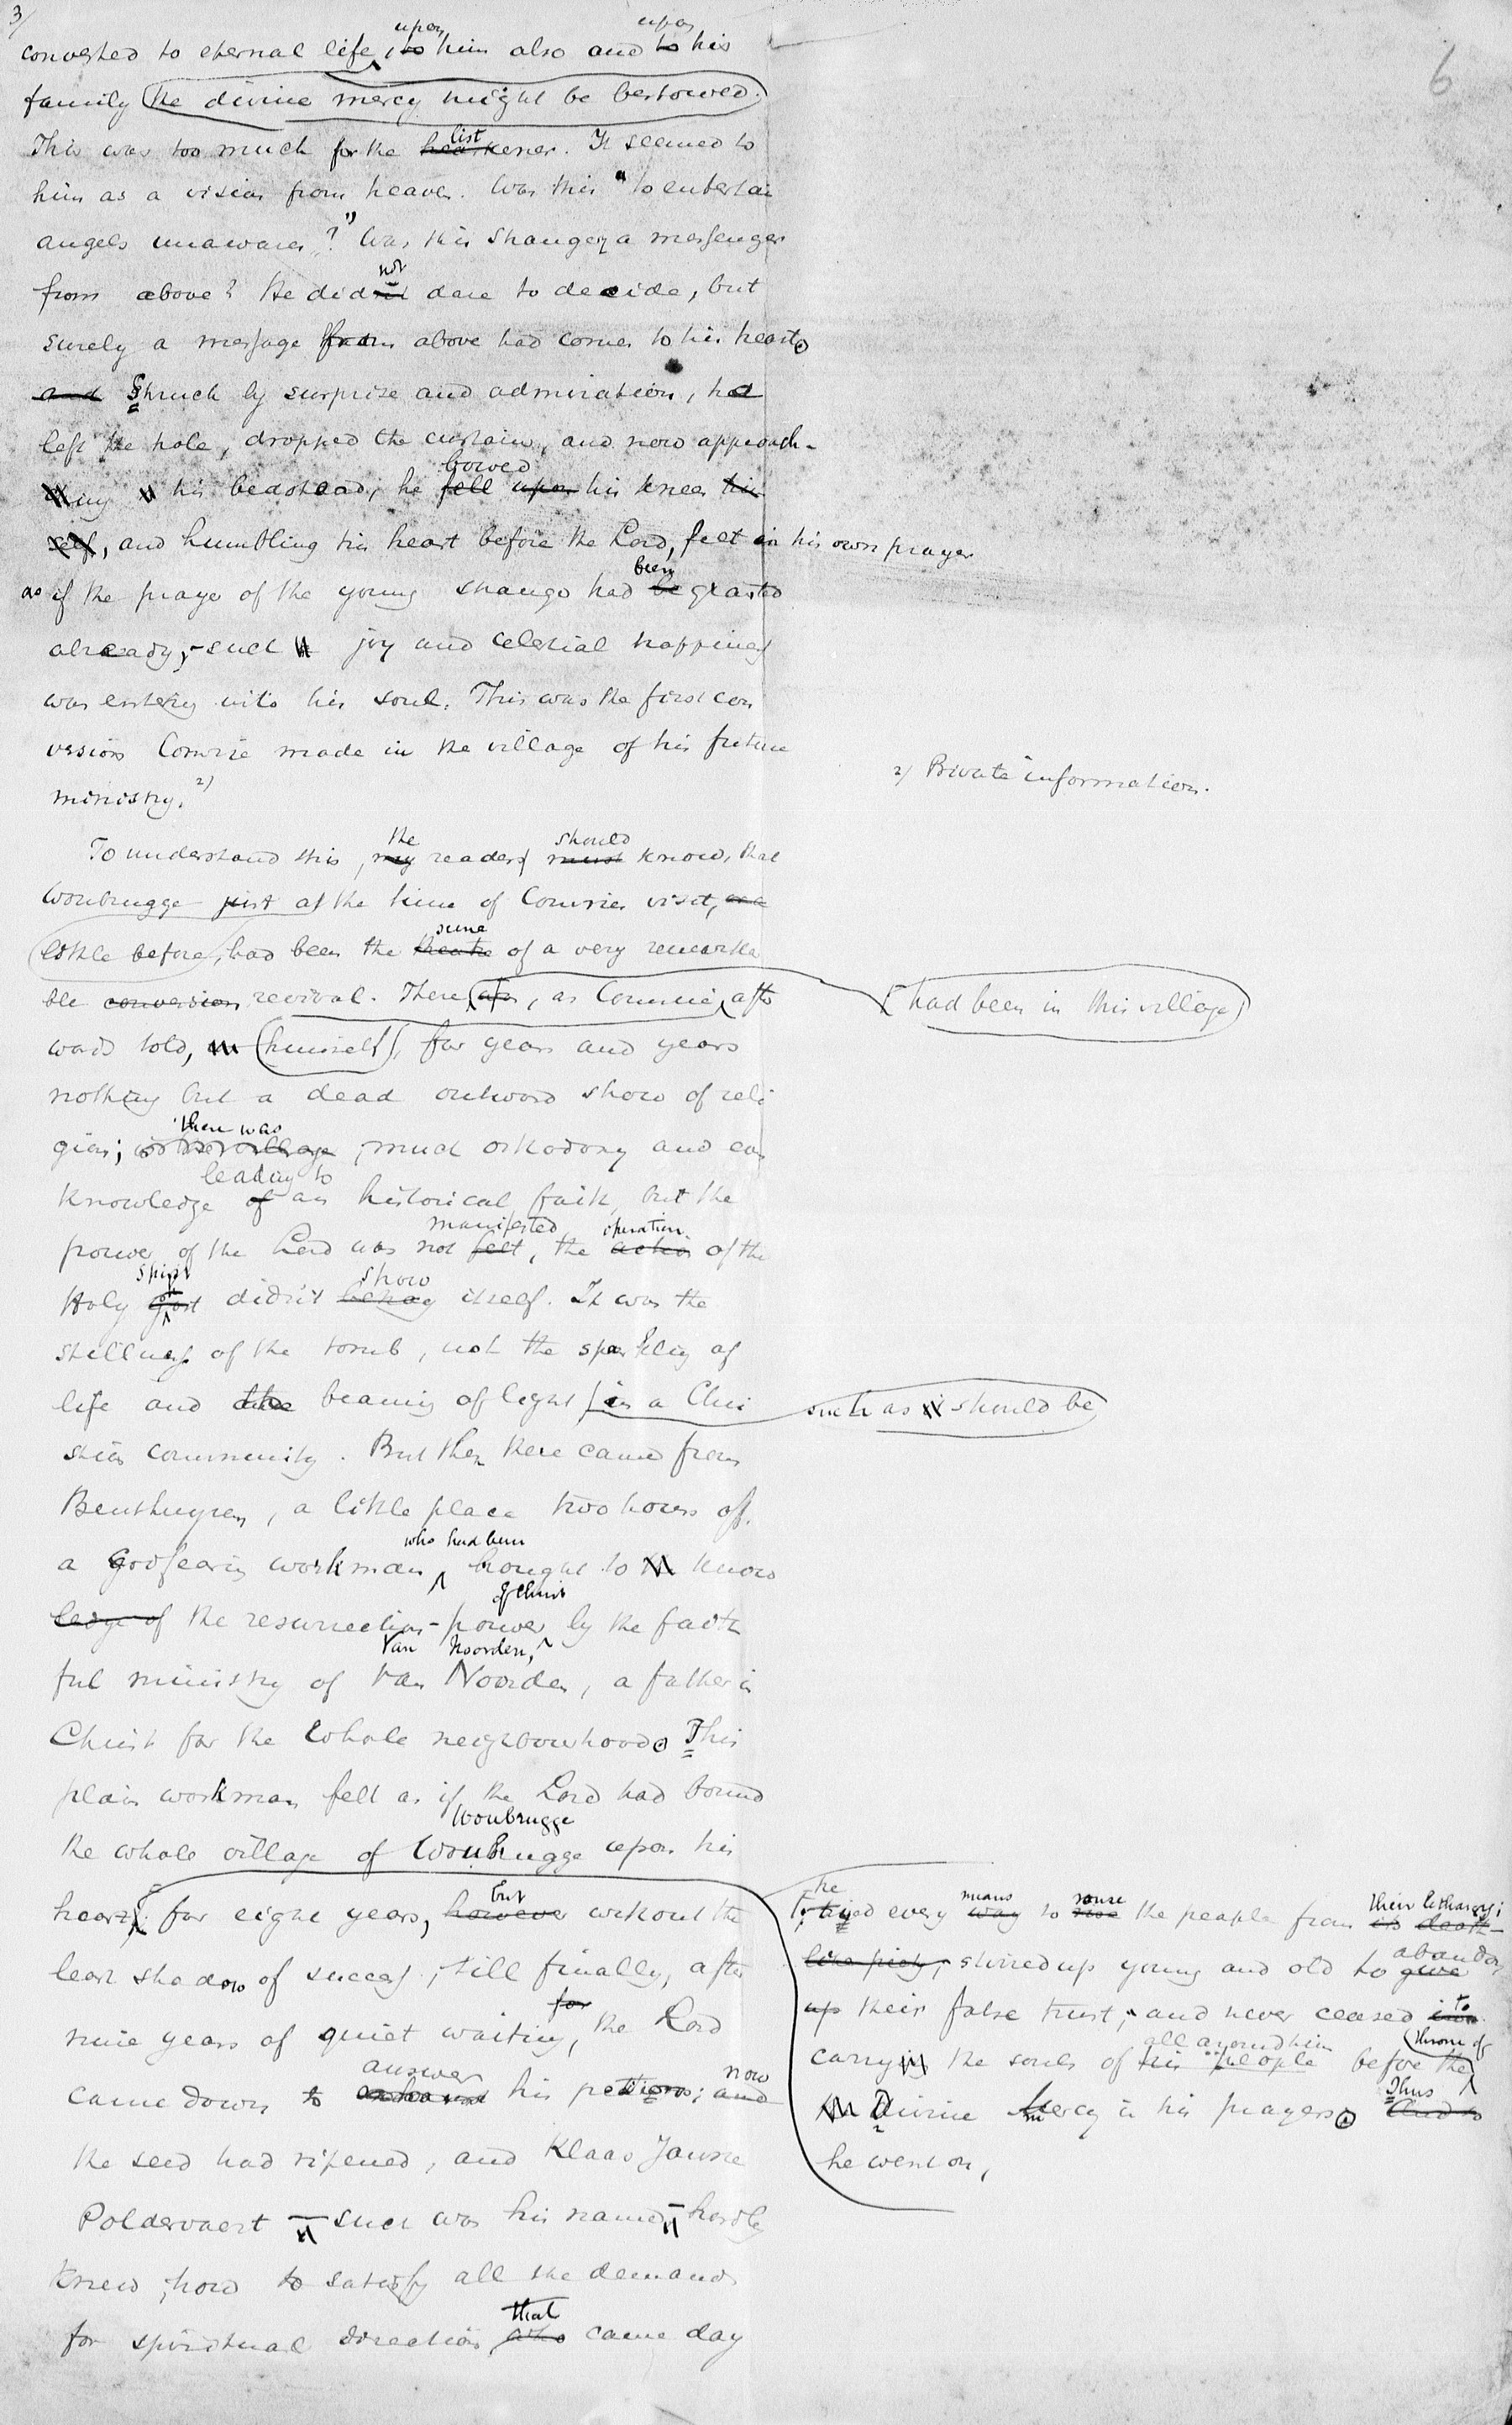 3/
6
upon upon
converted to eternal life, to him also and to his
family the divine mercy might be bestowed.
This was too much for the hearkener. It seemed to
list
him as a vision from heaven. Was this "to entertain
angels unawares?" Was this stranger a messenger
not
from above? He didn't dare to decide, but
surely a message from above had come to his heart.
and Struck by surprize and admiration, he
left the hole, dropped the curtain, and now approach-
bowed
ing his bedstead, he fell upon his knees him
self, and humbling his heart before the Lord, felt in his own prayer
been
as if the prayer of the young stranger had be granted
already, - such joy and celestial happiness
was entering into his soul. This was the first con
version Comrie made in the village of his future
ministry. 2)
2) Private information.
the should
To understand this, my readers must know, that
Woubrugge just at the time of Comries visit, or a
little before, had been the theatre of a very remarka
scene
ble conversion revival. There was, as Comrie after
had been in this village
ward told, himself, for years and years
nothing but a dead outward show of reli
there was
gion; in the village, much orthodoxy and
leading to
knowledge of an historical faith, but the
manifested operation
power of the Lord was not felt, the action of the
Spirit show
Holy Gost didn't itself. It was the
stillness of the tomb, not the sparkling of
life and the beaming of light in a Chri
such as should be
stian community. But then there came from
Benthuyzen, a little place two hours off,
who had been
a Godfearing workman, brought to know
of Christ
ledge of the resurrection-power by the faith
Van Noorden,
ful ministry of Van Noorden, a father in
Christ for the whole neighbourhood. This
plain workman felt as if the Lord had bound
Woubrugge
the whole village of Woubrugge upon his
but
heart, for eight years, however without the
least shadow of success; till finally, after
for
nine years of quiet waiting, the Lord
answer now
came down to his petitions; and
the seed had ripened, and Klaas Jansse
Poldervaert — such was his name — hardly
knew, how to satisfy all the demands
that
for spiritual direction who came day
he means rouse their lethargy;
tried every way to rise the people from its death-
abandon
like piety, stirred up young and old to give
to
up their false trust, and never ceased
all around him throne of
carrying the souls of his people before the
Thus
Divine Mercy in his prayers. And so
he went on,